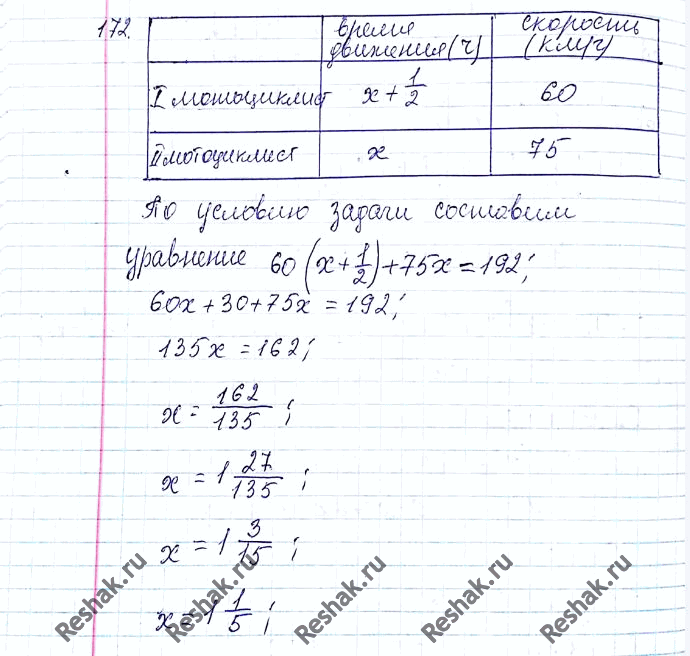 172.
время движения (ч) скорость (км/ч)
I мотоциклист x + 1/2 60
II мотоциклист x 75
По условию задачи составим
уравнение 60(x + 1/2) + 75x = 192;
60x + 30 + 75x = 192;
135x = 162;
x = 162/135 ;
x = 1 27/135 ;
x = 1 3/15 ;
x = 1 1/5 ;
Reshak.ru Reshak.ru Reshak.ru Reshak.ru Reshak.ru